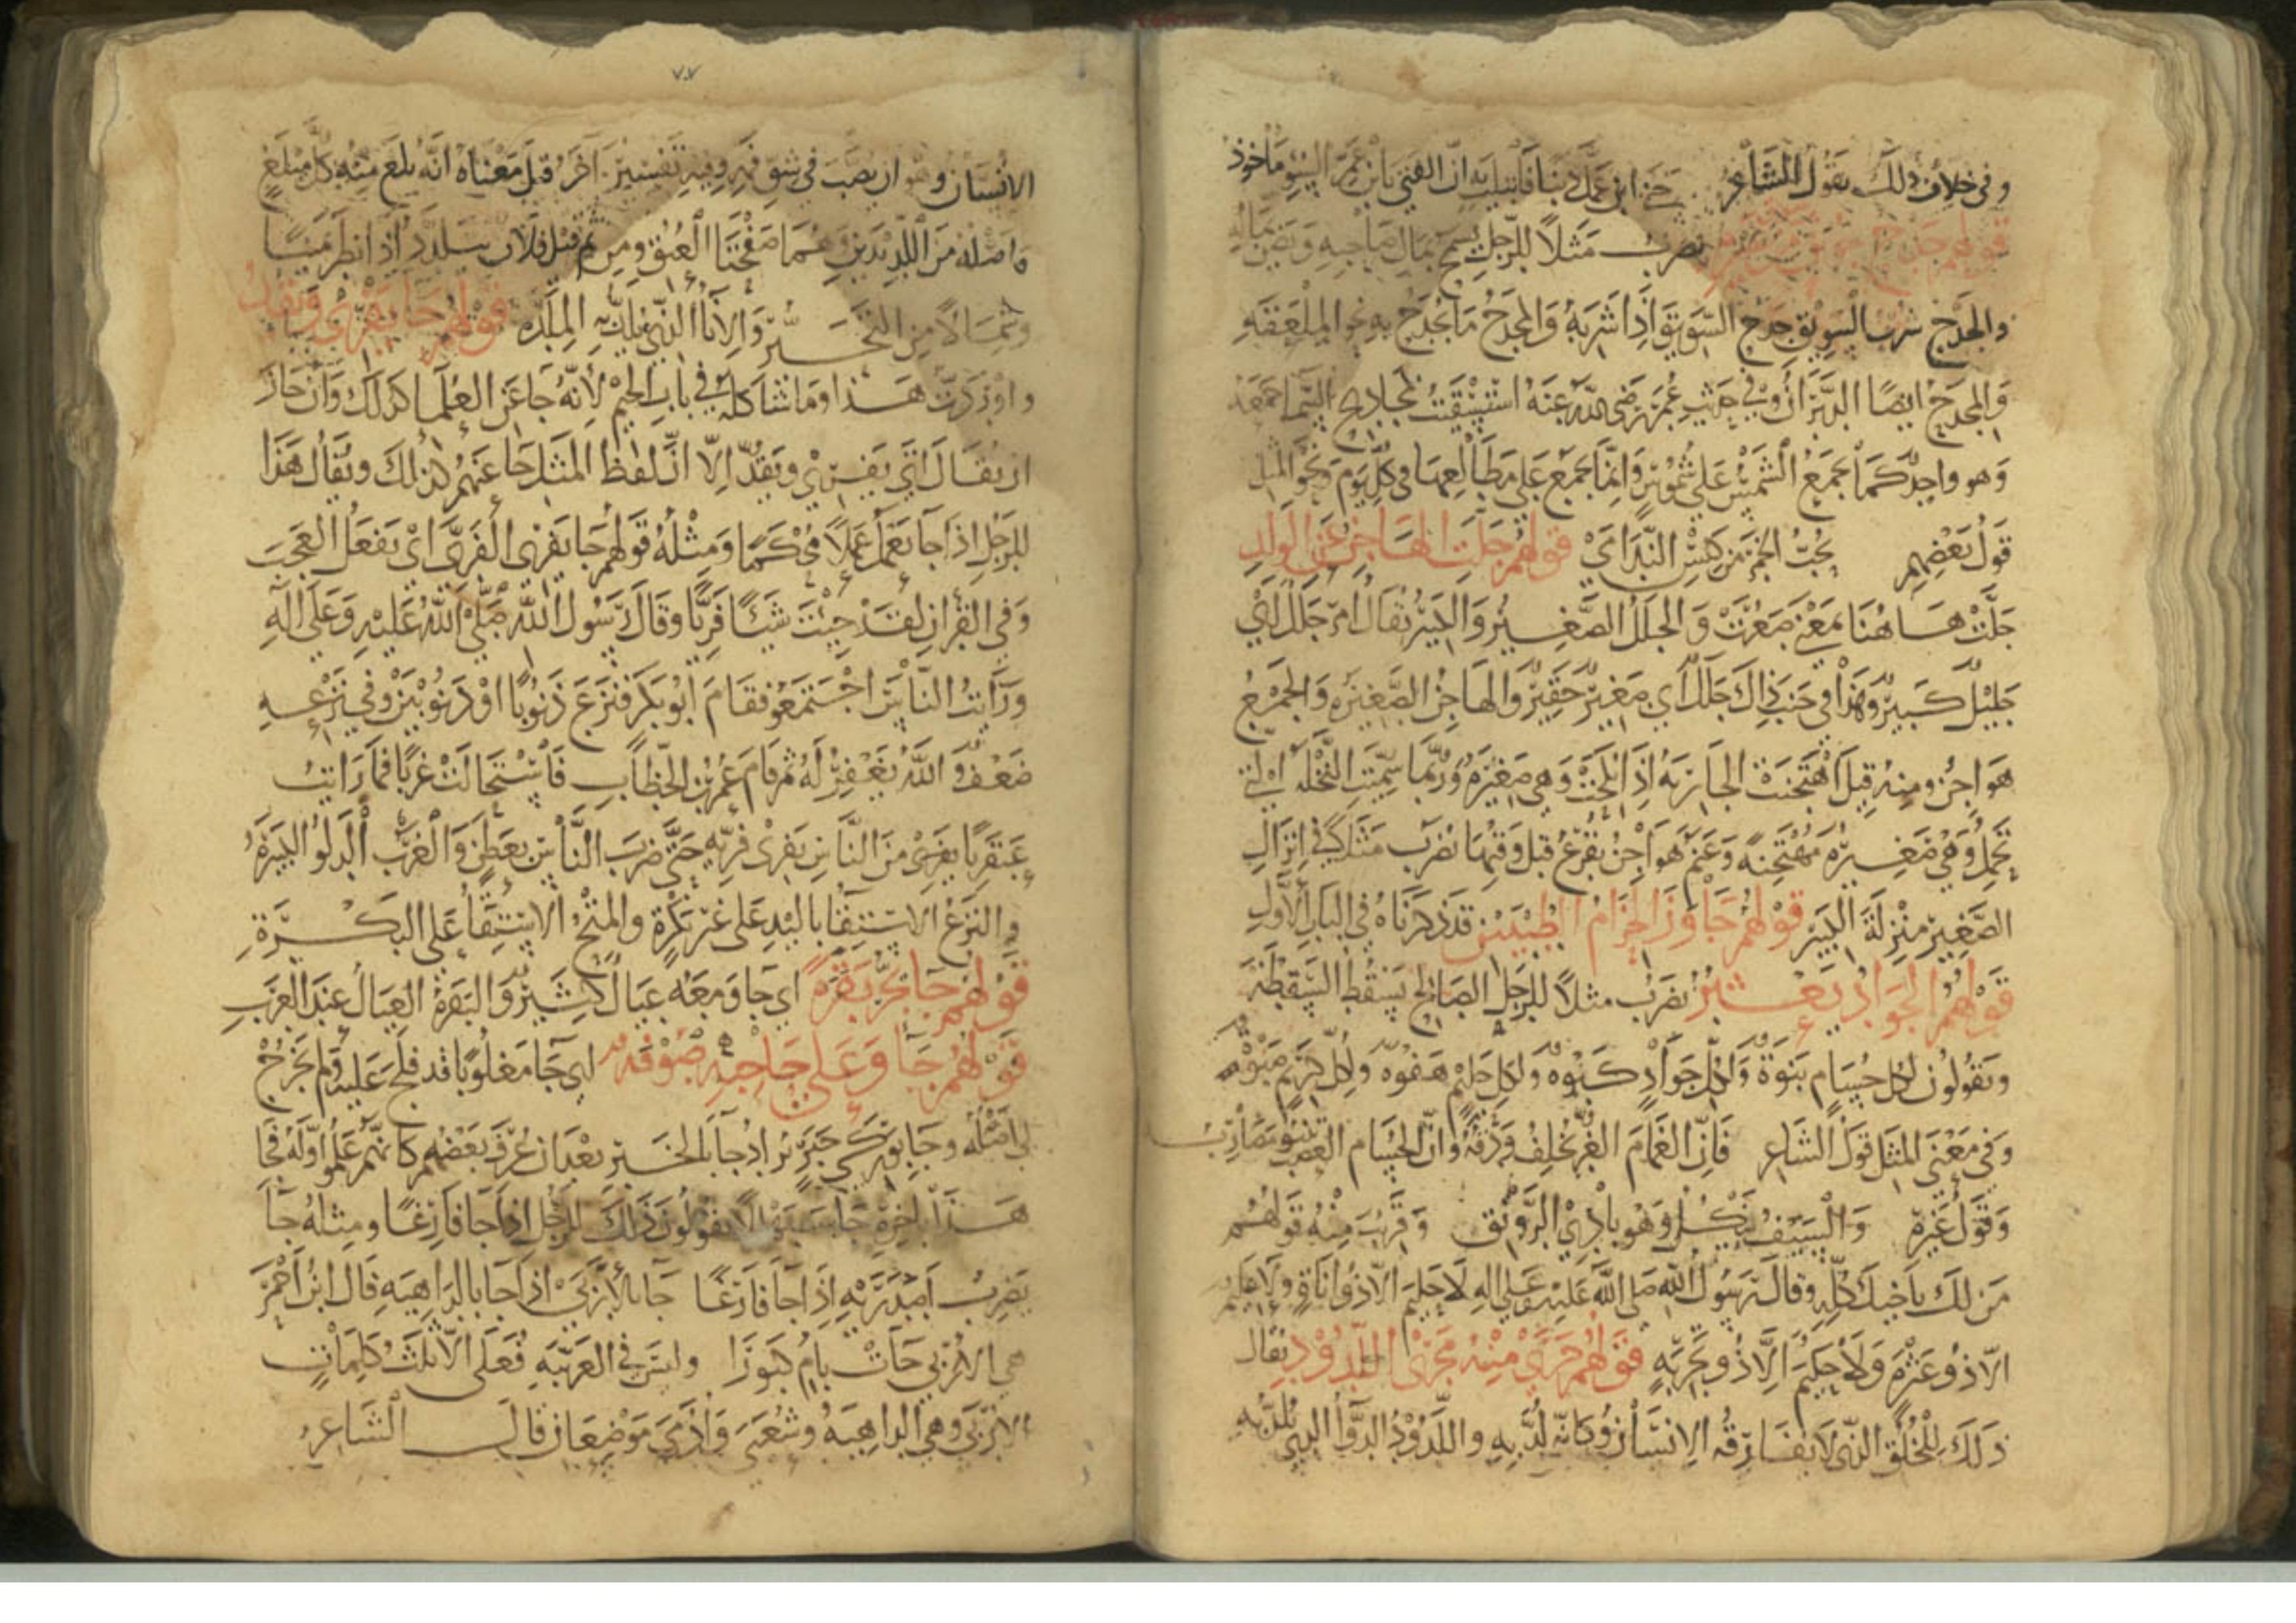 وفي خلاف ذلك يقول الشاعر جنى ابن عمك ذنبا فابتليت به ان الفتى بابن عم السوء ماخوذ
قولهم جدح جوين من سويق غيره يضرب مثلا للرجل يسمح بمال صاحبه ويضن بماله
والجدح شرب السويق جدح السويق واذا شربه والمجدح ما يجدح به نحو الملعقه
والمجدح ايضا الدبران وفي حديث عمر رضي الله عنه استسقيت بمجاديح السما جمعه
وهو واحد كما يجمع الشمس على شموس وانما يجمع على مطالعها في كل يوم ونحو المثل
قول بعضهم يحب الخمر من كيس الندامى قولهم جلت الهاجن عن الولد
جلت هاهنا بمعنى صغرت والجلل الصغير والكبير يقال امر جلل اي
جليل كبير وهذا في جنب ذاك جلل اي صغير حقير والهاجن الصغيره والجمع
هواجن ومنه قيل اهتجنت الجاريه اذا نكحت وهي صغيره وربما سميت النخله التي
تحمل وهي صغيره مهتجنه وغنم هواجن تقرع قبل وقتها يضرب مثلا في انزال
الصغير منزلة الكبير قولهم جاوز الحزام الطبيين قد ذكرناه في الباب الاول
قولهم الجواد يعثر يضرب مثلا للرجل الصالح يسقط السقطه
ويقولون لكل حسام نبوة ولكل جواد كبوه ولكل حليم هفوه ولكل كريم صبوه
وفي معنى المثل قول الشاعر فان الغمام الغر يخلف ودقه وان الحسام العضب تنبو مضاربه
وقول غيره والسيف ينكل وهو بادي الرونق وقريب منه قولهم
من لك باخيك كله وقال رسول الله صلى الله عليه وعلى اله لا حليم الا ذو اناة ولا عليم
الا ذو عثرة ولا حكيم الا ذو تجربه قولهم جرى منه مجرى اللدود يقال
ذلك للخلق الذي لا يفارقه الانسان وكانه لد به واللدود الدوا الذي يلد به
٧٠٧
الانسان وهو ان يصب في شق فيه وفيه تفسير اخر قيل معناه انه بلغ منه كل مبلغ
واصله من اللديدين وهما صفحتا العنق ومن ثم قيل فلان يتلدد اذا نظر يمينا
وشمالا من التحير والانا الذي يلد به الملده قولهم جا يفري ويقد
واوردت هذا وما شاكله في باب الجيم لانه جا عن العلما كذلك وان جاز
ان يقال اتى يفري ويقد الا ان لفظ المثل جا عنهم كذلك ويقال هذا
للرجل اذا جا يعمل عملا محكما ومثله قولهم جا يفري الفري اي يفعل العجب
وفي القران لقد جئت شئا فريا وقال رسول الله صلى الله عليه وعلى اله
ورايت الناس اجتمعو فقام ابو بكر فنزع ذنوبا او ذنوبين وفي نزعه
ضعف والله يغفر له ثم قام عمر بن الخطاب فاستحالت غربا فما رايت
عبقريا يفري من الناس يفري فريه حتى ضرب الناس بعطن والغرب الدلو الكبيرة
والنزع الاستقا باليد على غير بكرة والمتح الاستقا على البكرة
قولهم جا يجر بقره اي جا ومعه عيال كثير والبقرة العيال عند العرب
قولهم جا وعلى حاجبه صوفه اي جا مغلوبا قد فلج عليه ولم يخرج
لي امثله وجا بوركي خبر يراد جا بالخبر بعد ان عرف بعضهم كانهم علموا اوله فجا
هذا باخره جا سبهللا يقولون ذلك للرجل اذا جا فارغا ومثله جا
يضرب اصدريه اذا جا فارغا جا بالاربى اذا جا بالداهيه قال ابن احمر
هي الاربى جات بام حبوكرا وليس في العربيه فعلى الا ثلث كلمات
الاربى وهي الداهيه وشعبى وادمى موضعان قال الشاعر